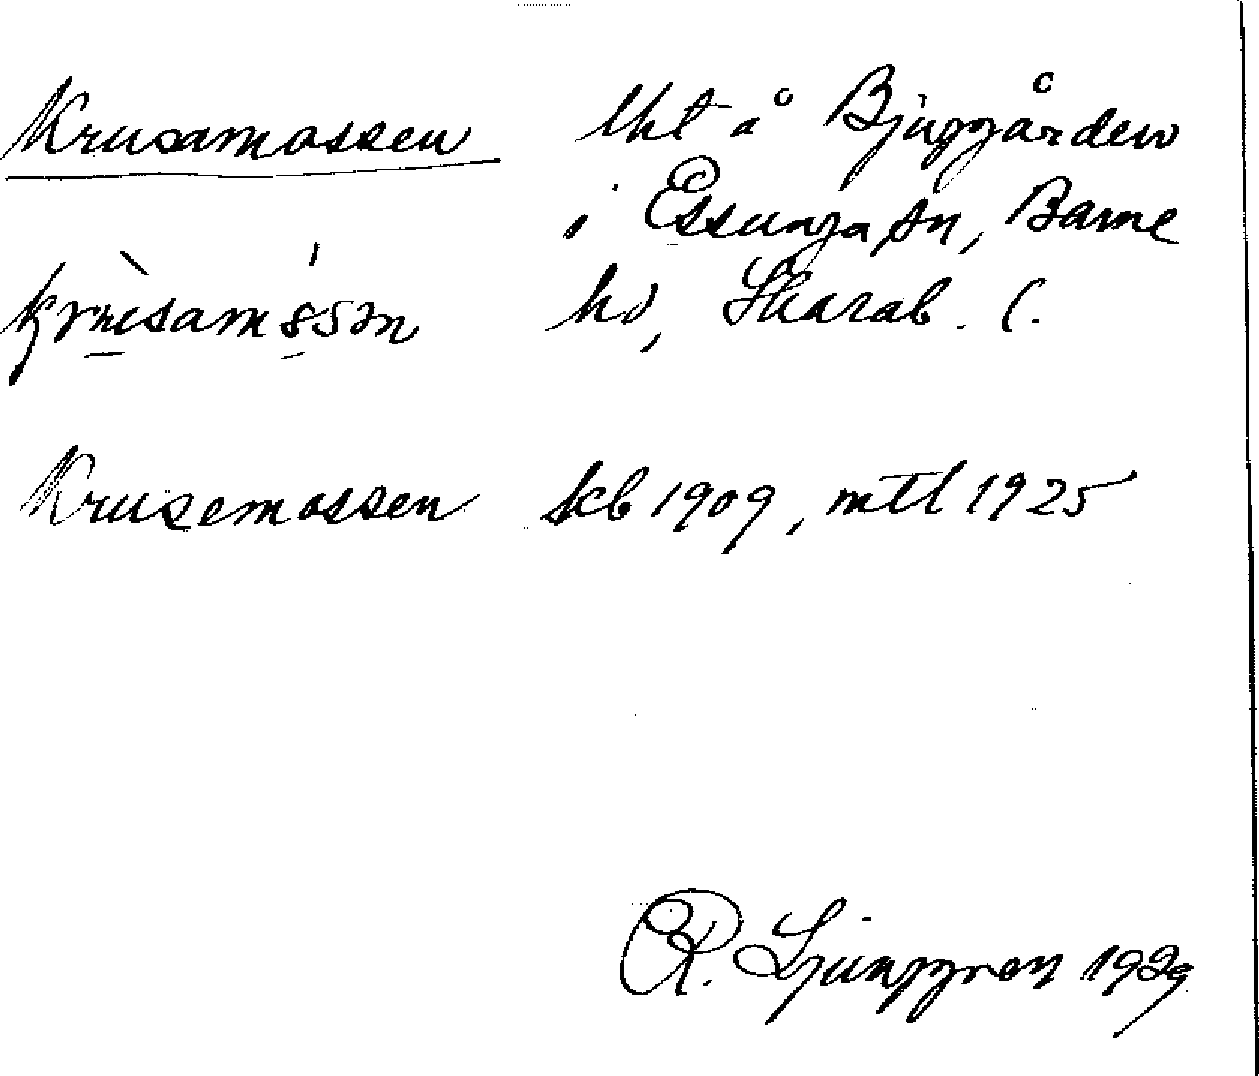 Krusamossen lht å Bjuggården
i Essunga sn, Barne
hd, Skarab. l.
Krusemossen kb 1909, mtl 1925
R. Ljunggren 1929